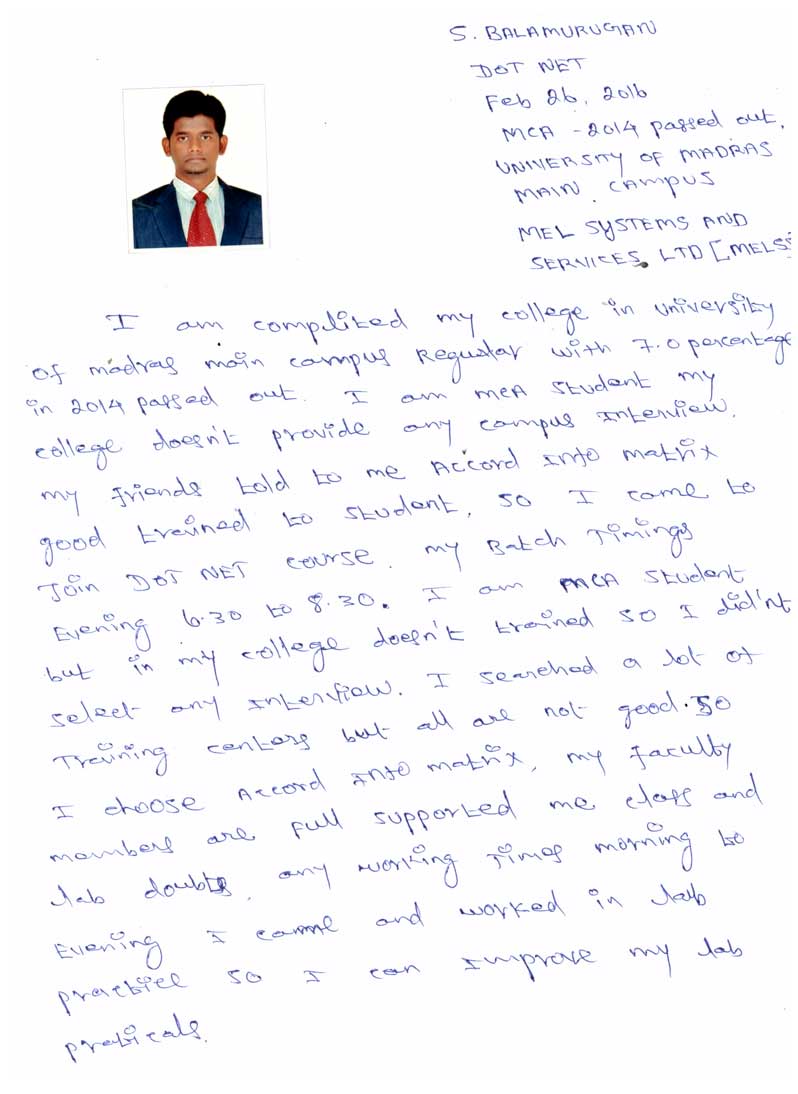 S. BALAMURUGAN
DOT NET
Feb 26, 2016
MCA - 2014 passed out,
UNIVERSITY OF MADRAS
MAIN CAMPUS
MEL SYSTEMS AND
SERVICES LTD [MELSS
I am complited my college in university
of madras main campus Regular with 7.0 percentage
in 2014 passed out. I am MCA student my
college doesn't provide any campus Interview.
my friends told to me Accord Info matrix
good trained to student, so I came to
Join DOT NET course. my Batch Timings
Evening 6.30 to 8.30. I am MCA student
but in my college doesn't trained so I did'nt
select any Interview. I searched a lot of
Training centers but all are not good. So
I choose Accord Info matrix, my faculty
members are full supported me class and
lab doubts, any working Times morning to
Evening I came and worked in lab
practice so I can Improve my lab
praticals.